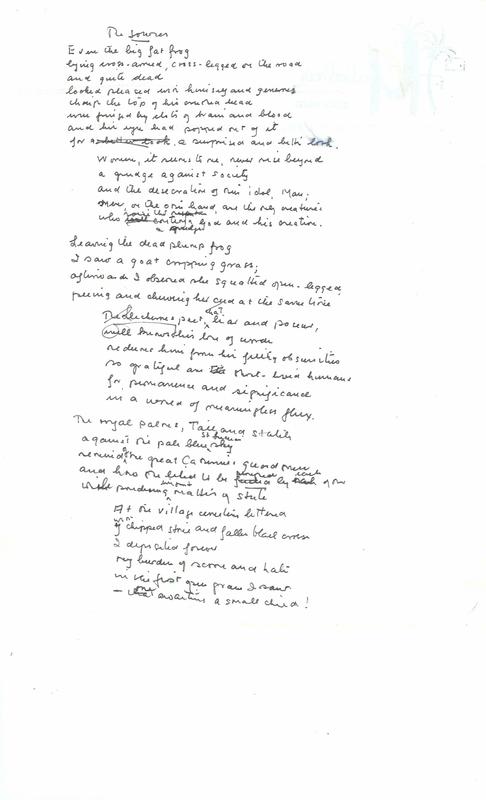 The Sources
Even the big fat frog
lying cross-armed, cross-legged on the road
and quite dead
looked pleased with himself and generous
though the top of his crushed head
was fringed by clots of brain and blood
and his eye had popped out of it
for a surprised and better look.
Women, it seems to me, never rise beyond
a grudge against society
and the desecration of their idol, Man;
Men, on the other hand, are the only creatures
who raise the
God and his creation.
a grudge
Leaving the dead plump frog
I saw a goat cropping grass;
afterwards I observed she squatted open-legged,
peeing and chewing her cud at the same time
that
poet, liar and poseur,
will his love of words
redeem him from his guilty obscurities
so grateful are short-lived humans
for permanence and significance
in a world of meaningless flux.
The royal palms, Tall and stately
against the pale blue sky
remind the great
and how he liked to be by
pondering matters of state
At the village cemetery littered
with chipped stone and fallen black cross
I deposited forever
my burden of scorn and hate
in the first open grave I saw
— one awaiting a small child!